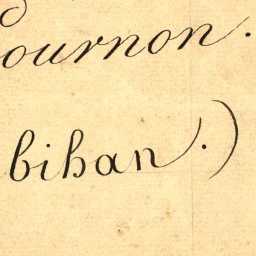 ournon.
bihan.)